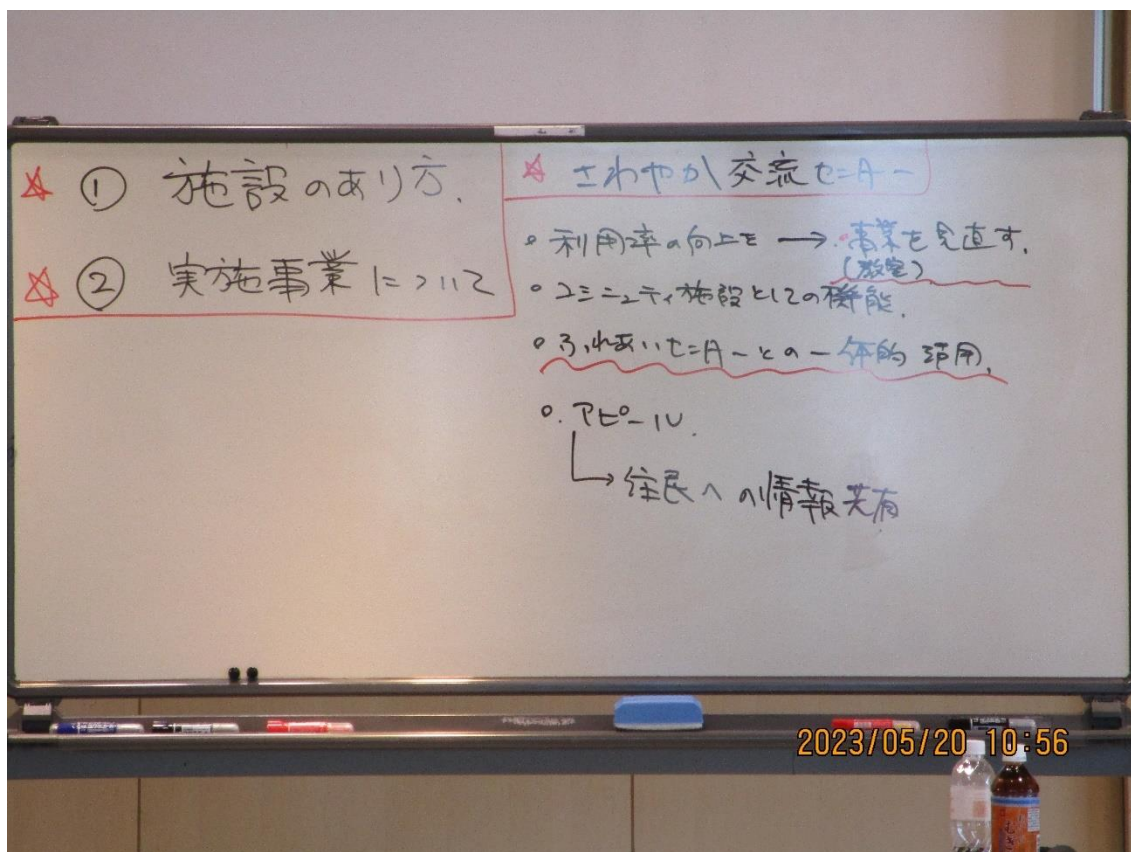 ☆ ① 施設のあり方.
☆ ② 実施事業について
☆ さわやか交流センター
• 利用率の向上を → • 事業を見直す.
(教室)
• コミュニティ施設としての機能.
• ふれあいセンターとの一体的活用.
• アピール.
→ 住民への情報共有
2023/05/20 10:56